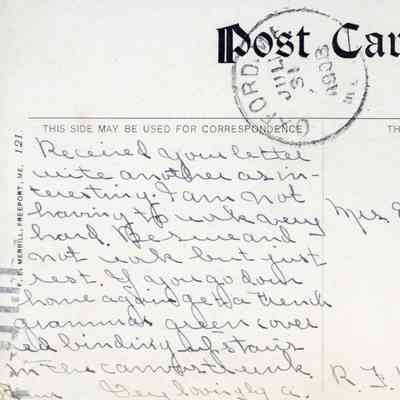 Post Car
OXFORD,
JUL
31
1908
THIS SIDE MAY BE USED FOR CORRESPONDENCE
TH
MERRILL, FREEPORT, ME. 121.
Received your letter
write another as in-
teresting. I am not
having to work very
hard. Be sure and
not work but just
rest. If you go down
home again get a french
grammar green cover
ed binding upstairs
in the canvas trunk.
Very lovingly a.
Mrs. E
R. F.